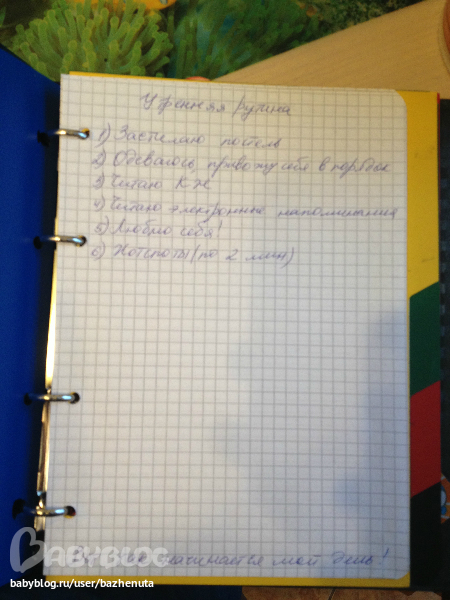 Утренняя рутина
1) Застилаю постель
2) Одеваюсь, привожу себя в порядок
3) Читаю КЖ
4) Читаю электронные напоминания
5) Люблю себя!
6) Хотспоты (по 2 мин)
начинается мой день!
BABYBLOG
babyblog.ru/user/bazhenuta